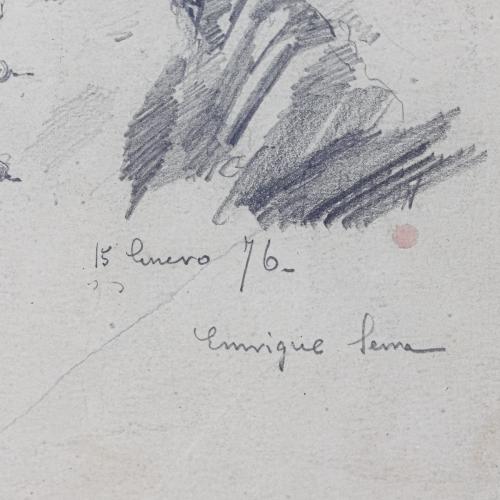 15 Enero 76-
Enrique Serra